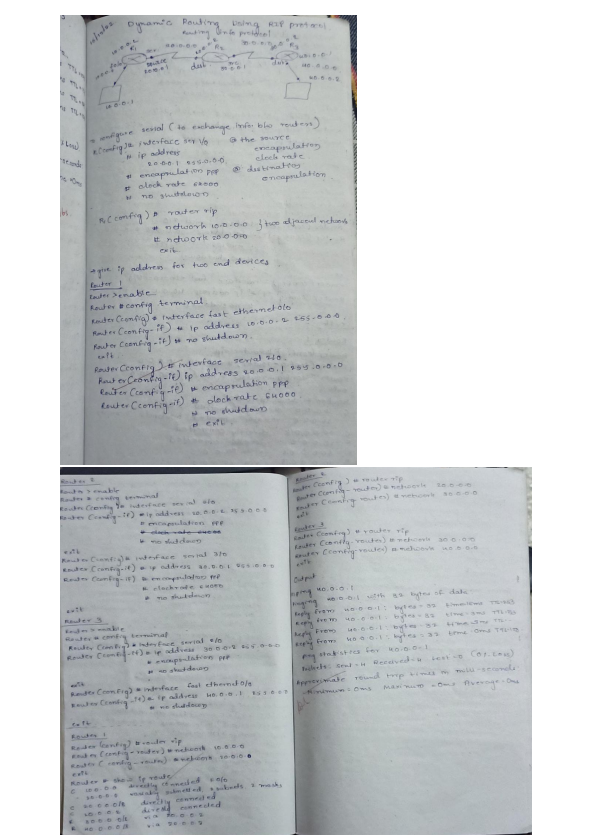 Dynamic Routing Using RIP protocol
Routing Info protocol
10.0.0.2
R1
20.0.0.1
R2
R3
40.0.0.1
source
dest.
30.0.0.1
dest
40.0.0.2
10.0.0.1
→ configure serial (to exchange info b/w routers)
R(config)# interface ser 1/0 the source
# ip address encapsulation
20.0.0.1 255.0.0.0 clock rate
# encapsulation ppp destination
# clock rate 64000 encapsulation
# no shutdown
R1(config) # router rip
# network 10.0.0.0 } two adjacent network
# network 20.0.0.0
exit
→ give ip address for two end devices
Router 1
Router > enable
Router # config terminal
Router (config) # interface fast ethernet 0/0
Router (config-if) # ip address 10.0.0.2 255.0.0.0
Router (config-if) # no shutdown.
exit
Router (config) # interface serial 2/0.
Router (config-if) ip address 20.0.0.1 255.0.0.0
Router (config-if) # encapsulation ppp
Router (config-if) # clock rate 64000
# no shutdown
# exit
Router 2
Router > enable
Router # config terminal
Router (config) # interface serial 2/0
Router (config-if) # ip address 20.0.0.2 255.0.0.0
# encapsulation ppp
# clock rate 64000
# no shutdown
exit
Router (config) # interface serial 3/0
Router (config-if) # ip address 30.0.0.1 255.0.0.0
Router (config-if) # encapsulation ppp
# clock rate 64000
# no shutdown
exit
Router 3
Router > enable
Router # config terminal
Router (config) # interface serial 2/0
Router (config-if) # ip address 30.0.0.2 255.0.0.0
# encapsulation ppp
# no shutdown
exit
Router (config) # interface fast ethernet 0/0
Router (config-if) # ip address 40.0.0.1 255.0.0.0
# no shutdown
exit
Router 1
Router (config) # router rip
Router (config-router) # network 10.0.0.0
Router (config-router) # network 20.0.0.0
exit
Router # show ip route
C 10.0.0.0 directly connected
20.0.0.0 variably subnetted 2 subnets, 2 masks
C 20.0.0.0/8 directly connected
C 20.0.0.2 directly connected
R 30.0.0.0/8 via 20.0.0.2
R 40.0.0.0/8 via 20.0.0.2
Router 2
Router (config) # router rip
Router (config-router) # network 20.0.0.0
Router (config-router) # network 30.0.0.0
exit
Router 3
Router (config) # router rip
Router (config-router) # network 30.0.0.0
Router (config-router) # network 40.0.0.0
exit
Output
ping 40.0.0.1
Pinging 40.0.0.1 with 32 bytes of data
Reply from 40.0.0.1: bytes=32
Reply from 40.0.0.1: bytes=32
Reply from 40.0.0.1: bytes=32
Reply from 40.0.0.1: bytes=32
Ping statistics for 40.0.0.1
Packets: Sent=4 Received=4 Lost=0 (0% Loss)
Approximate round trip times in milli-seconds
Minimum=0ms Maximum Average